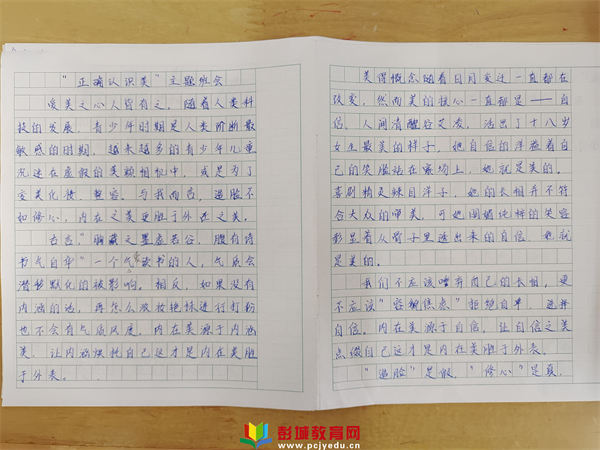 "正确认识美"主题班会
爱美之心人皆有之，随着人类科
技的发展，青少年时期是人类阶断最
敏感的时期，越来越多的青少年儿童
沉迷在虚假的美颜相机中，或是为了
变美化妆、整容。与我而言，追脸不
如修心，内在之美更胜于外在之美。
古言："胸藏之墨虚若谷，腹有诗
书气自华"一个常读书的人，气质会
潜移默化的被影响。相反，如果没有
内涵的话，再怎么浓妆艳抹进行打扮
也不会有气质风度。内在美源于内涵
美，让内涵烘托自己这才是内在美胜
于外表。
美得概念随着日月变迁一直都在
改变，然而美的核心一直都是——自
信。人间清醒谷艾凌，活出了十八岁
女生最美的样子，她自信的洋溢着自
己的笑脸站在赛场上，她就是美的。
喜剧精灵辣目洋子，她的长相并不符
合大众的审美，可她囧媚炸样的笑容
彰显着从骨子里透出来的自信，她就
是美的。
我们不应该嫌弃自己的长相，更
不应该"容貌焦虑"拒绝自卑，选择
自信。内在美源于自信，让自信之美
点缀自己这才是内在美胜于外表。
"追脸"是假，"修心"是真。
彭城教育网
www.pcjyedu.cn